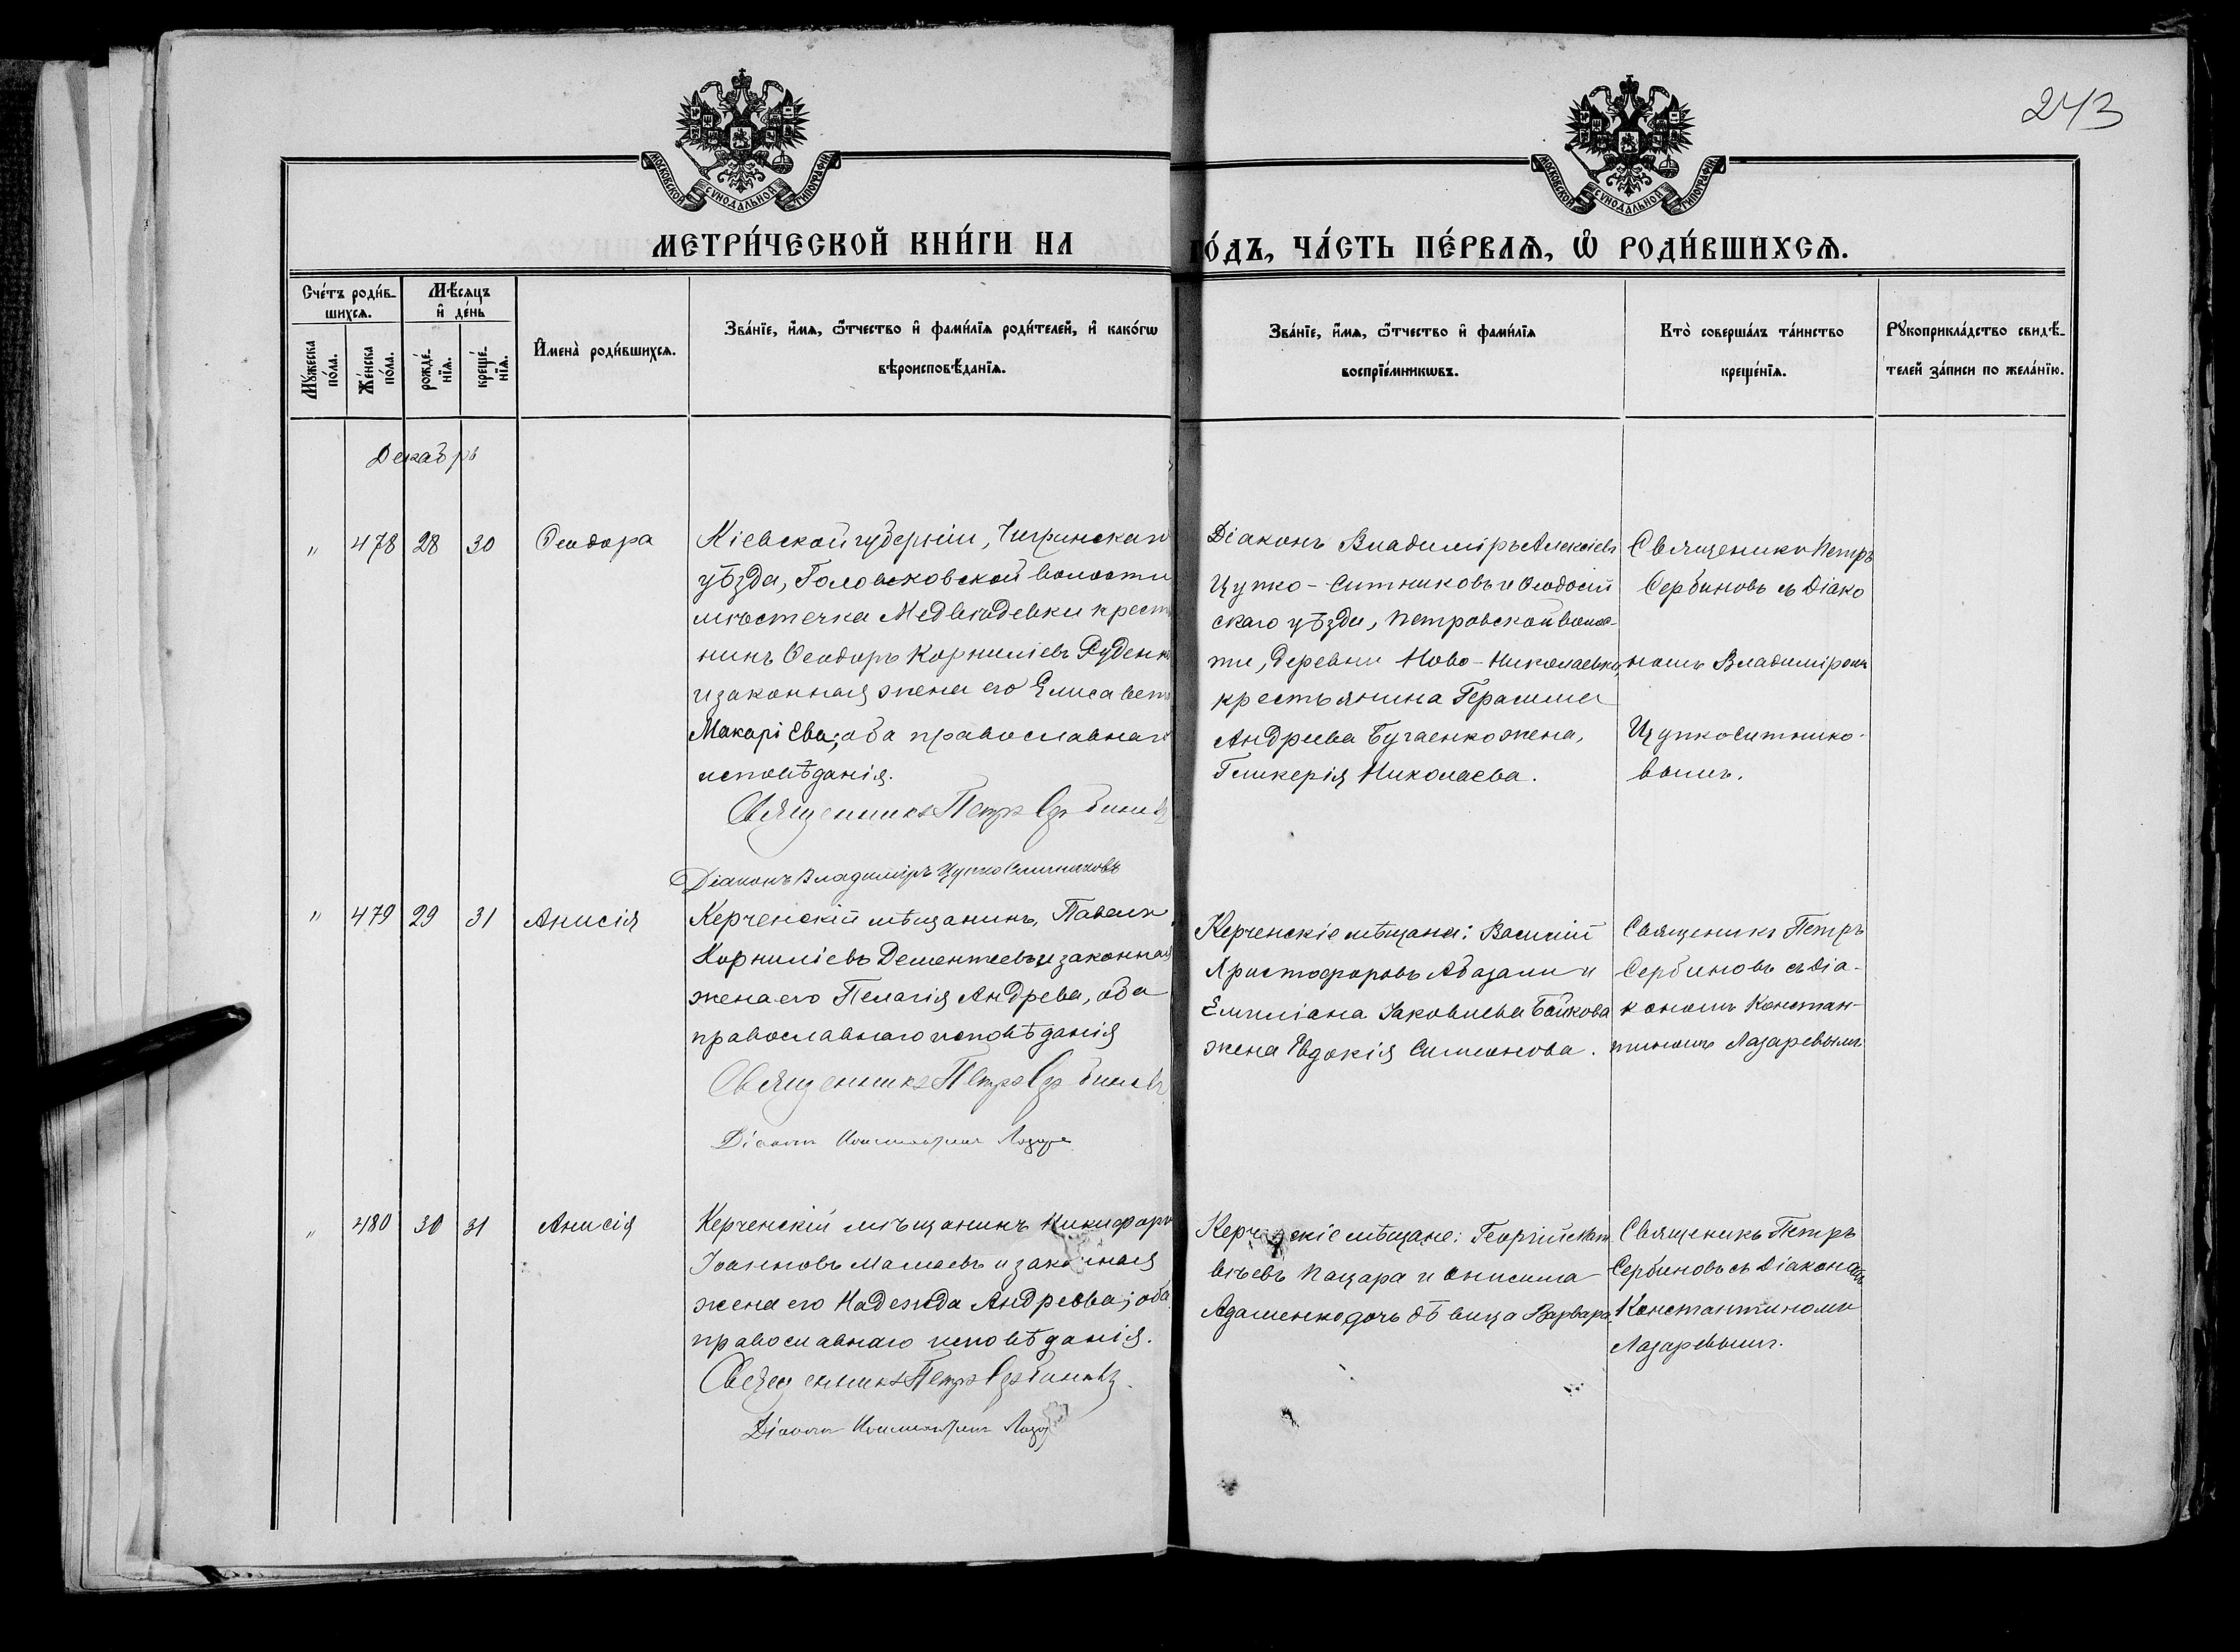 243
МОСКОВСКОЙ СУНОДАЛЬНОЙ ТИПОГРАФІИ
МОСКОВСКОЙ СУНОДАЛЬНОЙ ТИПОГРАФІИ
МЕТРИ́ЧЕСКОЙ КНИ́ГИ НА
ГО́ДЪ, ЧА́СТЬ ПЕ́РВАѦ, Ѽ РОДИ́ВШИХСѦ.
Сче́тъ роди́в-
шихсѧ.
Мꙋ́жеска по́ла.
Же́нска по́ла.
Мѣ́сѧцъ
и҆ де́нь
рожде́-нїѧ.
креще́-нїѧ.
И҆мена̀ роди́вшихсѧ.
Зва́нїе, и҆́мѧ, ѻ҆́тчество и҆ фами́лїѧ роди́телей, и҆ како́гѡ
вѣроисповѣ́данїѧ.
Зва́нїе, и҆́мѧ, ѻ҆́тчество и҆ фами́лїѧ
воспрїе́мникѡвъ.
Кто̀ соверша́лъ та́инство
креще́нїѧ.
Рꙋкоприкла́дство свидѣ́-
телей за́писи по жела́нїю.
Декабрь
" 478 28 30 Ѳеодора
Кіевской губерніи, Чигринскаго
уѣзда, Головковской волости
мѣстечка Медвѣдевки крестья
нинъ Ѳеодоръ Корниліевъ Руденко
и законная жена его Елисавета
Макаріева; оба православнаго
исповѣданія.
Священникъ Петръ Сербиновъ
Діаконъ Владиміръ Цупко Ситниковъ
Діаконъ Владиміръ Алексіевъ
Цупко-Ситниковъ и Ѳеодосій
скаго уѣзда, Петровской волос-
ти, деревни Ново-Николаевки,
крестьянина Герасима
Андреева Бугаенко жена,
Гликерія Николаева.
Священикъ Петръ
Сербиновъ съ Діако
номъ Владиміромъ
Цупко Ситнико-
вымъ.
" 479 29 31 Анисія
Керченскій мѣщанинъ, Павелъ
Корниліевъ Дементьевъ и законная
жена его Пелагія Андрева, оба
православнаго исповѣданія
Священникъ Петръ Сербиновъ
Діаконъ Константинъ Лазаре
Керченскіе мѣщане: Василій
Христофоровъ Абазали и
Емиліана Іаковлева Бойкова
жена Евдокія Симонова.
Священикъ Петръ
Сербиновъ съ Діа-
кономъ Констан-
тиномъ Лазаревымъ
" 480 30 31 Анисія
Керченскій мѣщанинъ Никифоръ
Іоанновъ Мамаевъ и законная
жена его Надежда Андреева; оба
православнаго исповѣданія.
Священникъ Петръ Сербиновъ
Діаконъ Константинъ Лазар
Керченскіе мѣщане: Георгій Мат
вѣевъ Пацара и Онисима
Адаменко дочь дѣвица Варвара
Священикъ Петръ
Сербиновъ съ Діакономъ
Константиномъ
Лазаревымъ.